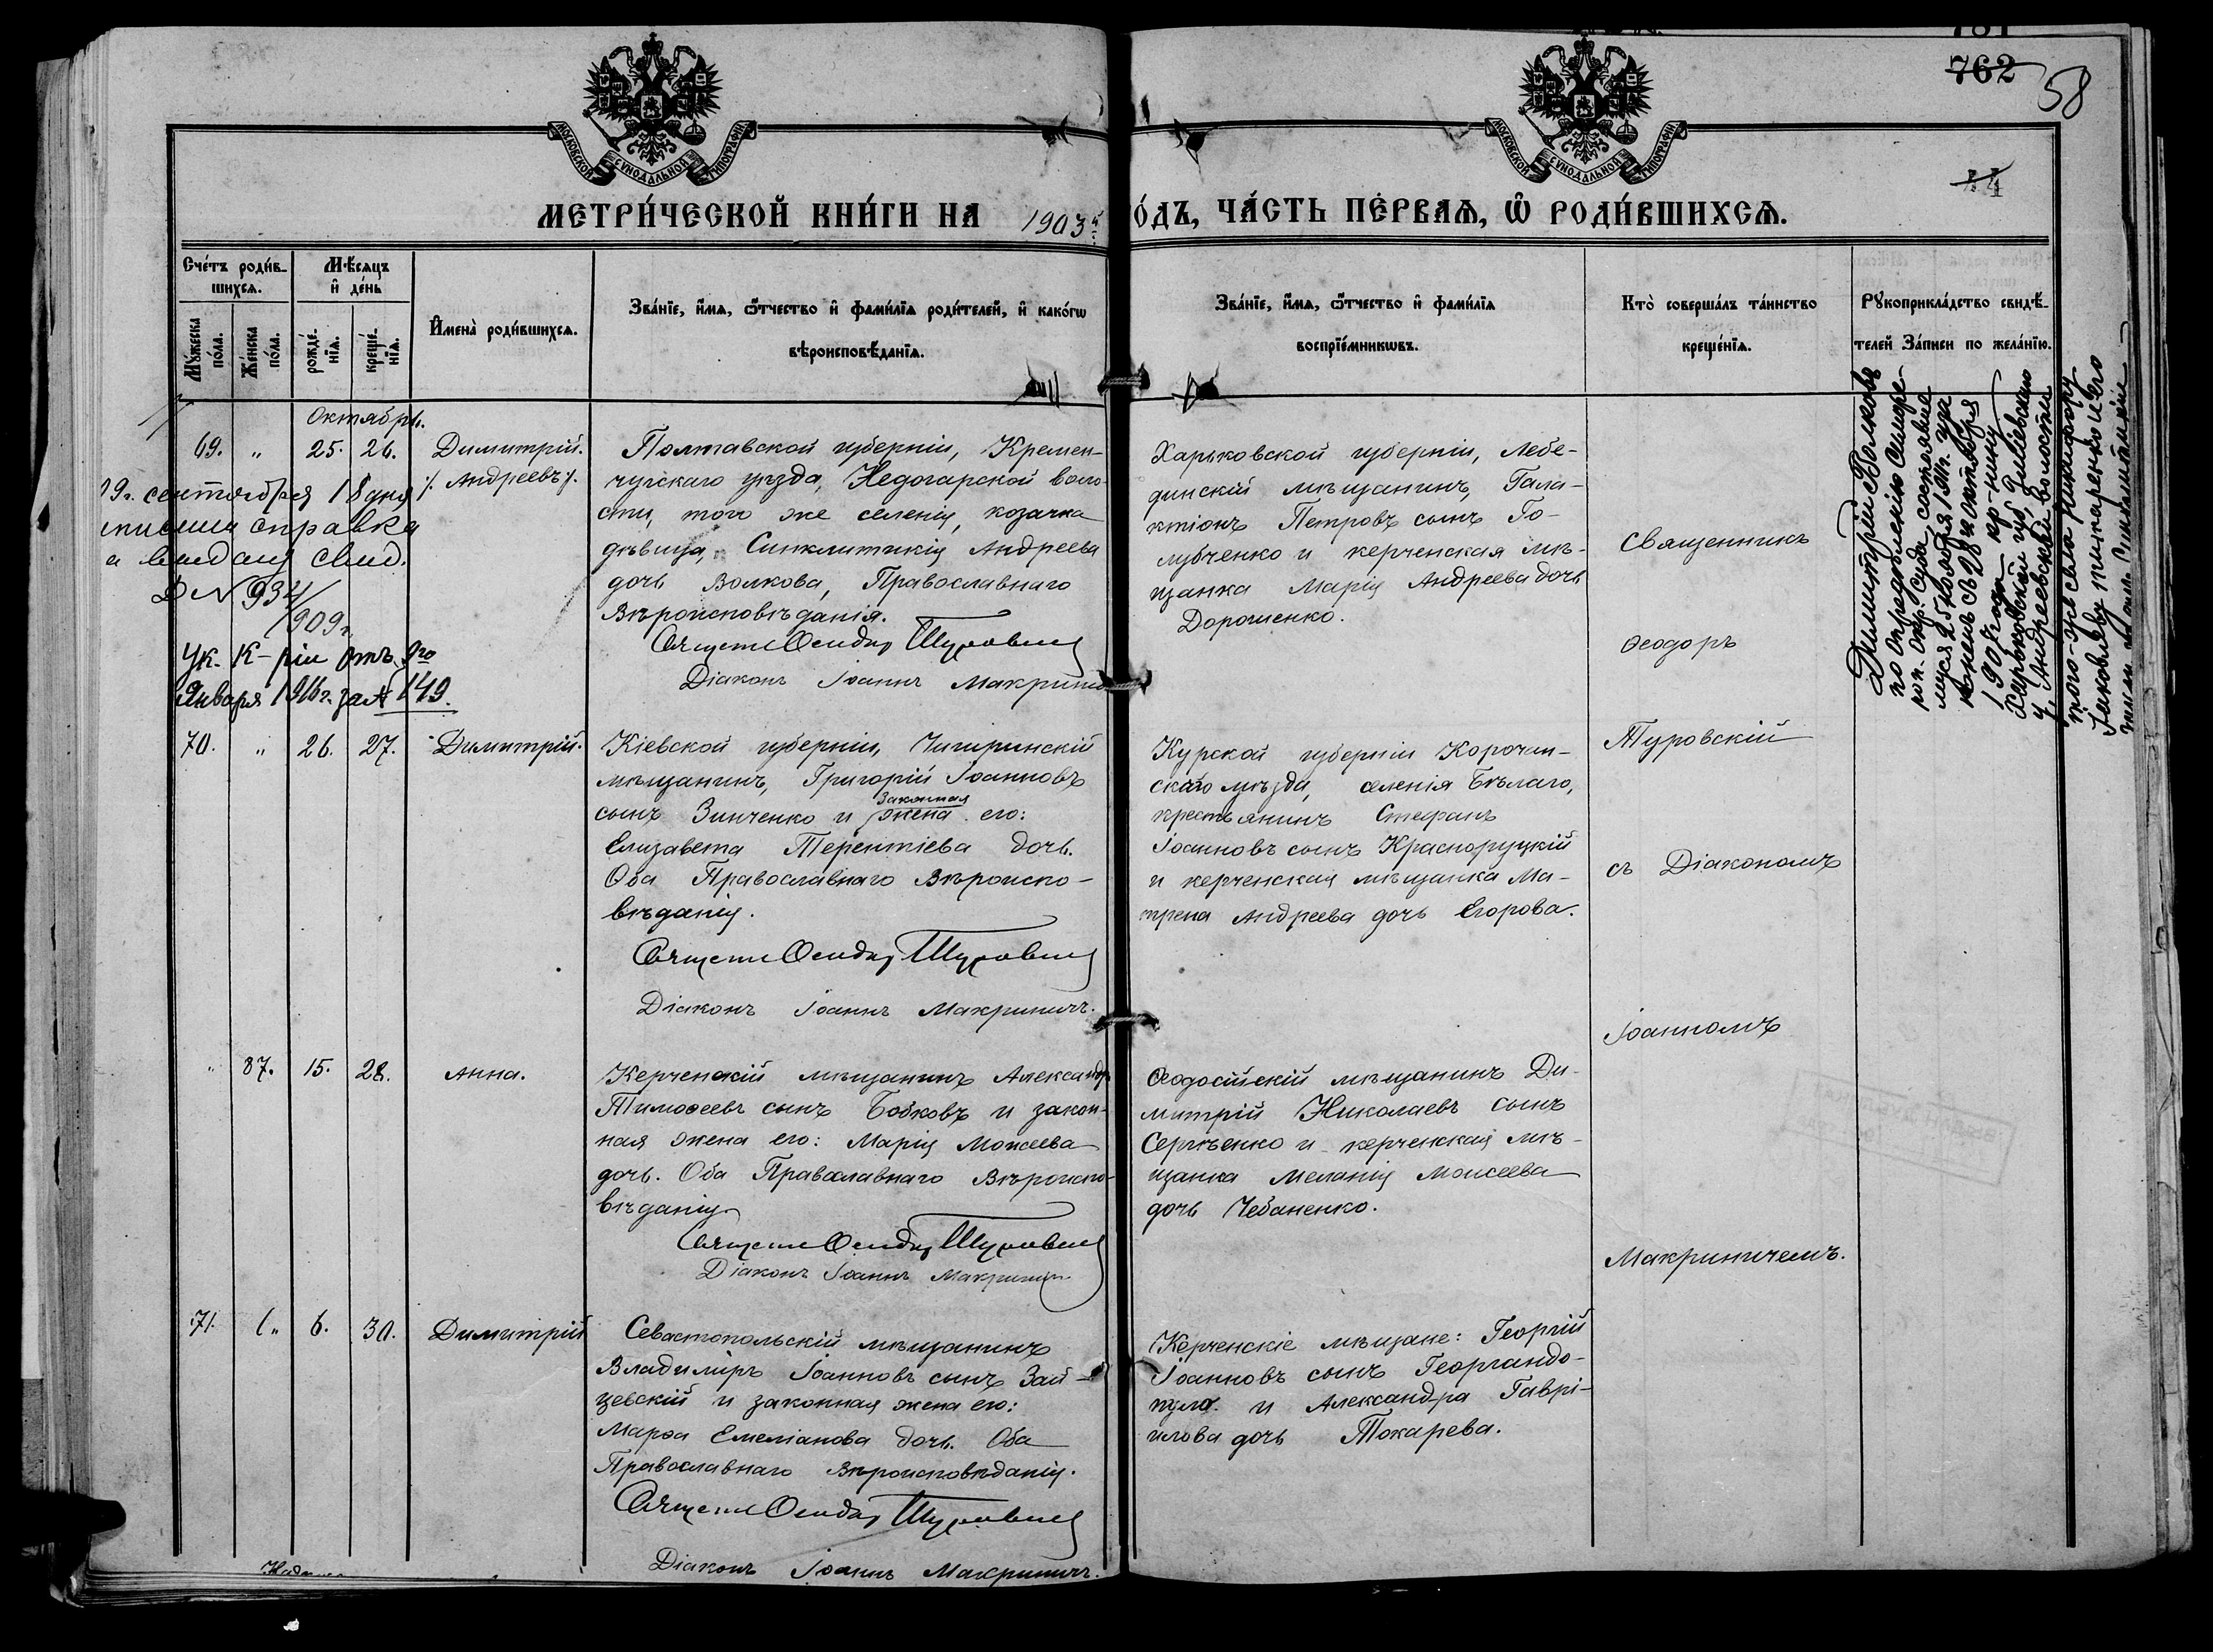 781
762
58
44
МОСКОВСКОЙ СѴНОДАЛЬНОЙ ТИПОГРАФІИ
МОСКОВСКОЙ СѴНОДАЛЬНОЙ ТИПОГРАФІИ
МЕТРИ́ЧЕСКОЙ КНИ́ГИ НА 1903й
О́ДЪ, ЧА́СТЬ ПЕ́РВАѦ, Ѿ РОДИ́ВШИХСѦ.
Сче́тъ роди́в-
шихсѧ.
Мꙋ́жеска по́ла.
Же́нска по́ла.
Мѣ́сѧцъ
и҆ де́нь
рожде́-
нїѧ.
креще́-
нїѧ.
И҆мена̀ роди́вшихсѧ.
Зва́нїе, и҆́мѧ, ѻ҆́тчество и҆ фами́лїѧ роди́телей, и҆ како́гѡ
вѣроисповѣ́данїѧ.
Зва́нїе, и҆́мѧ, ѻ҆́тчество и҆ фами́лїѧ
воспрїе́мникѡвъ.
Кто̀ соверша́лъ та́инство
креще́нїѧ.
Рꙋкоприкла́дство свидѣ́-
телей За́писи по жела́нїю.
Октябрь.
69. " 25. 26. Димитрій.
/: Андреевъ :/.
Полтавской губерніи, Кремен-
чугскаго уѣзда, Недогарской воло-
сти, того же селенія, козачка
дѣвица, Синклитикія Андреева
дочь Волкова, Православнаго
Вѣроисповѣданія.
Священ Ѳеодоръ Туровскій
Діаконъ Іоаннъ Макринич
09г. сентября 18 дня
справка
и выдан свид.
№ 934/
909г.
Ук. К-ріи отъ 9го
Января 1916г. за № 149.
Харьковской губерніи, Лебе-
динскій мѣщанинъ, Гала-
ктіонъ Петровъ сынъ Го-
лубченко и керченская мѣ-
щанка Марія Андреева дочь
Дорошенко.
Священникъ
Ѳеодоръ
Туровскій
съ Діакономъ
Іоанномъ
Макриничемъ.
Димитрій Волковъ
по опредѣленію Симфе-
роп. окр. суда, состоявше
муся 25 ноября
1907 года кр-нину
Харьковской губ.
у. Андреевской волости
того-же села
Яковлеву и его
70. " 26. 27. Димитрій.
Кіевской губерніи, Чигиринскій
мѣщанинъ, Григорій Іоанновъ
сынъ Зинченко и законная жена его:
Елизавета Терентіева дочь.
Оба Православнаго Вѣроиспо-
вѣданія.
Священ Ѳеодоръ Туровскій
Діаконъ Іоаннъ Макриничъ.
Курской губерніи Корочан-
скаго уѣзда, селенія Бѣлаго,
крестьянинъ Стефанъ
Іоанновъ сынъ Красноруцкій
и керченская мѣщанка Ма-
трена Андреева дочь Егорова.
" 87. 15. 28. Анна.
Керченскій мѣщанинъ Александръ
Тимоѳеевъ сынъ Бобковъ и закон-
ная жена его: Марія Моисеева
дочь. Оба Православнаго Вѣроиспо-
вѣданія
Священ Ѳеодоръ Туровскій
Діаконъ Іоаннъ Макринич
Ѳеодосійскій мѣщанинъ Ди-
митрій Николаевъ сынъ
Сергѣенко и керченская мѣ-
щанка Меланія Моисеева
дочь Чебаненко.
71. " 6. 30. Димитрій
Севастопольскій мѣщанинъ
Владиміръ Іоанновъ сынъ Зай-
цевскій и законная жена его:
Марѳа Емеліанова дочь. Оба
Православнаго вѣроисповѣданія.
Священ Ѳеодоръ Туровскій
Діаконъ Іоаннъ Макриничъ.
Керченскіе мѣщане: Георгій
Іоанновъ сынъ Георгандо-
пуло и Александра Гаврі-
илова дочь Токарева.